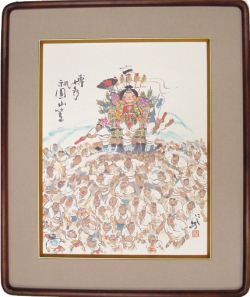 博多
祇園山笠